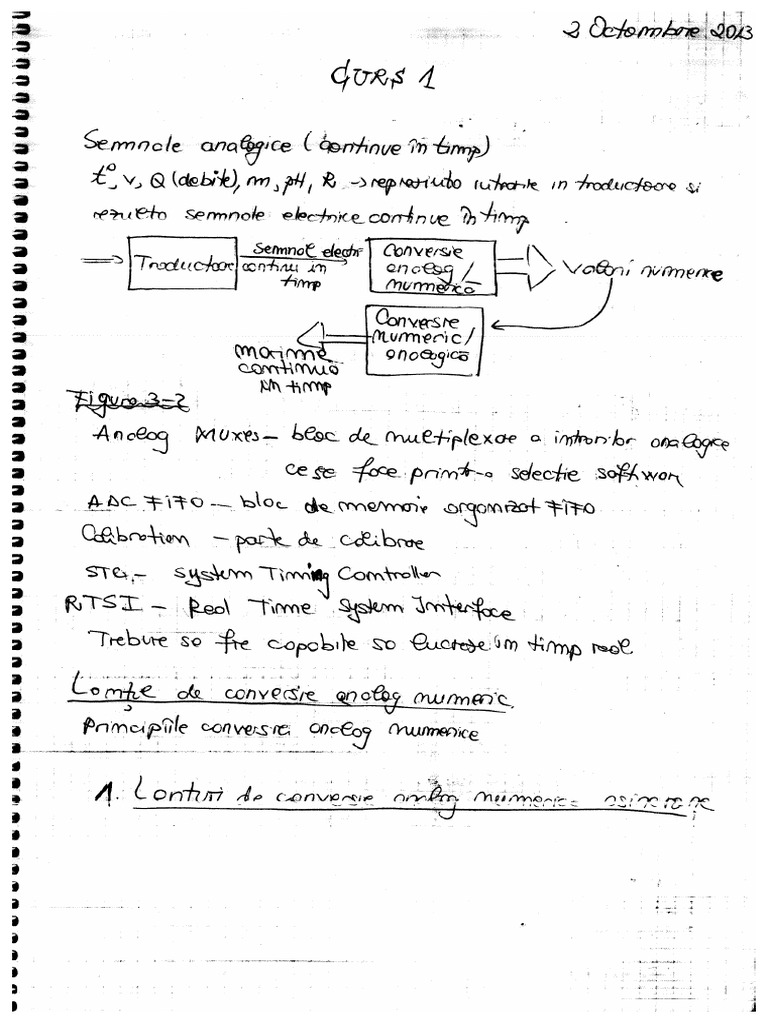 2 Octombrie 2013
CURS 1
Semnale analogice (continue în timp)
t°, v, Q (debite), m, pH, R → reprezintă intrările in traductoare si
rezulta semnale electrice continue în timp.
Traductoare
Semnal electri
continu in
timp
Conversie
analog/
numerică
Valori numerice
Conversie
numeric/
analogică
marime
continuă
in timp
Figura 3-2
Analog Muxes – bloc de multiplexare a intrarilor analogice
ce se face printr-o selectie softwar
ADC FiFO – bloc de memorie organizat FiFO
Calibration – parte de calibrare
STC – System Timing Controller
RTSI – Real Time System Interface
Trebuie sa fie capabile sa lucreze in timp real
Lanțuri de conversie analog numeric
Principiile conversiei analog numerice
1. Lanturi de conversie analog numerice asincrone